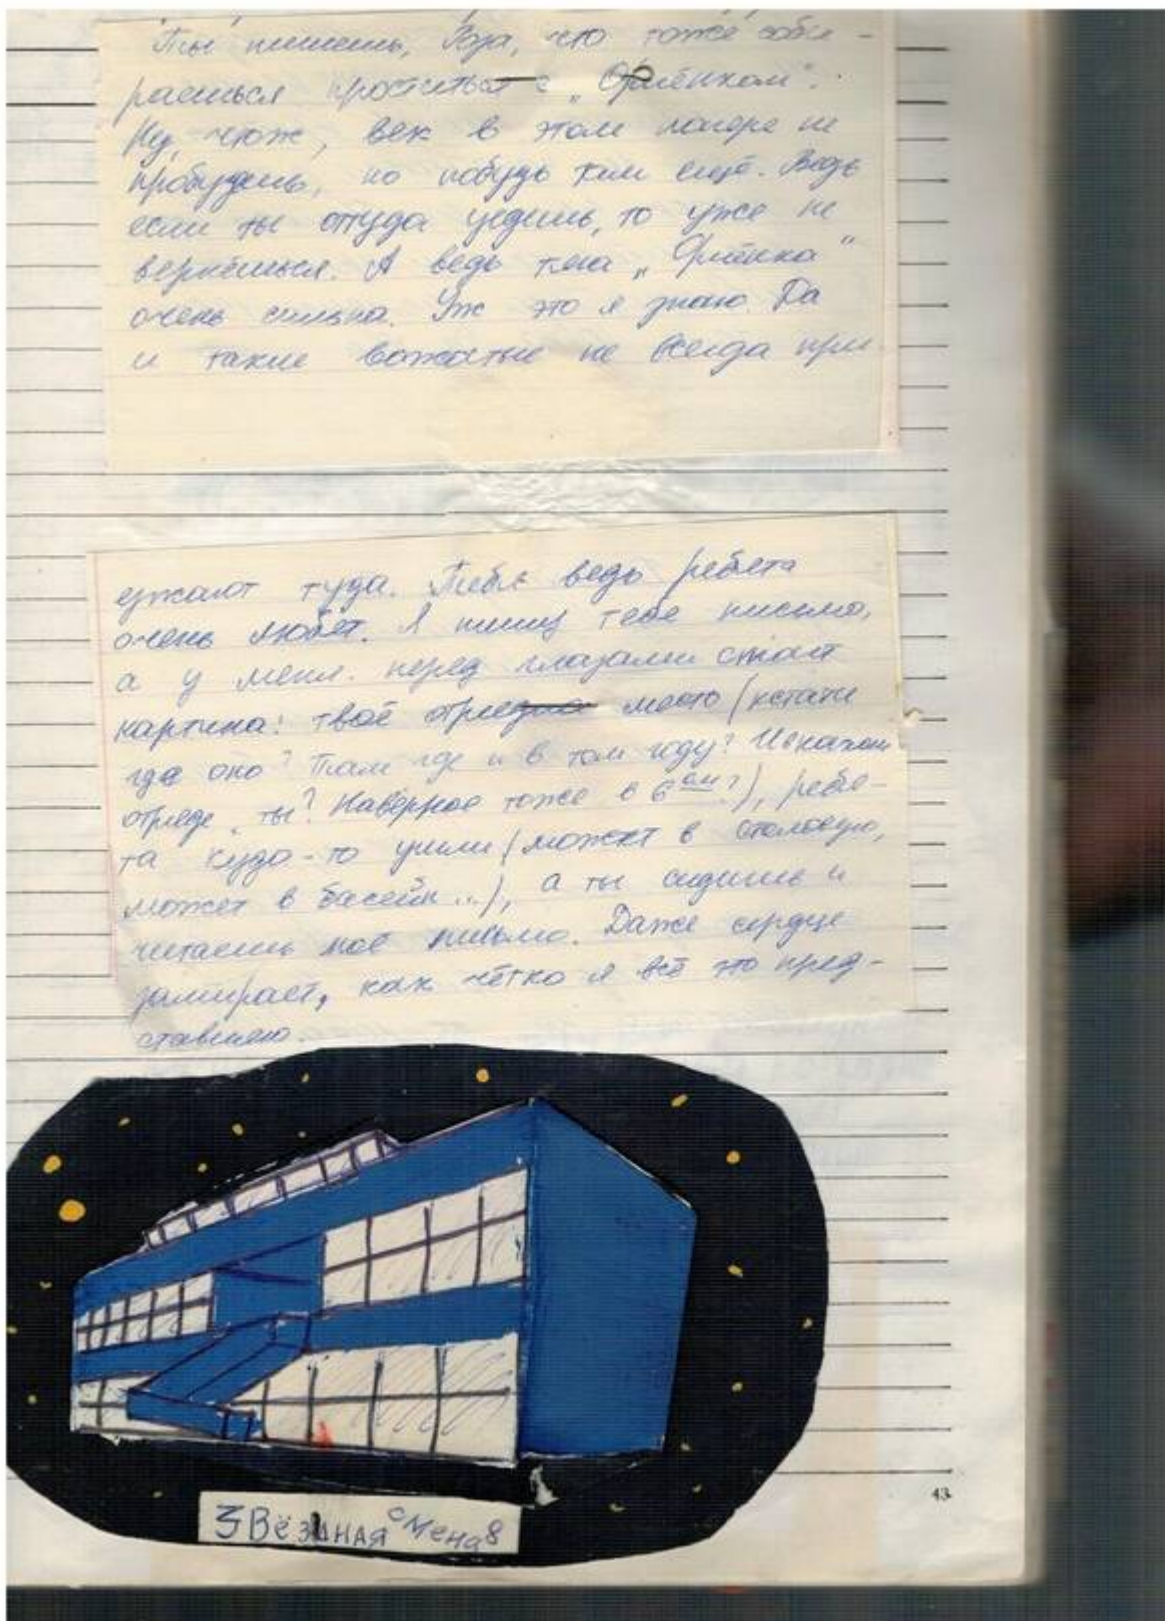 Ты пишешь, Роза, что тоже соби-
раешься проститься с „Орлёнком".
Ну, чтож, век в этом лагере не
пробудешь, но побудь там ещё. Ведь
если ты оттуда уедешь, то уже не
вернёшься. А ведь тяга „Орлёнка"
очень сильна. Уж это я знаю. Да
и такие вожатые не всегда при
езжают туда. Тебя ведь ребята
очень любят. Я пишу тебе письмо,
а у меня перед глазами стоит
картина: твоё место (кстати
где оно? Там где и в том году? И в каком
отряде ты? Наверное тоже в 6ом?), ребя-
та куда-то ушли (может в столовую,
может в басейн...), а ты сидишь и
читаешь моё письмо. Даже сердце
замирает, как чётко я всё это пред-
ставляю.
ЗВёзДНАЯ сМена8
43